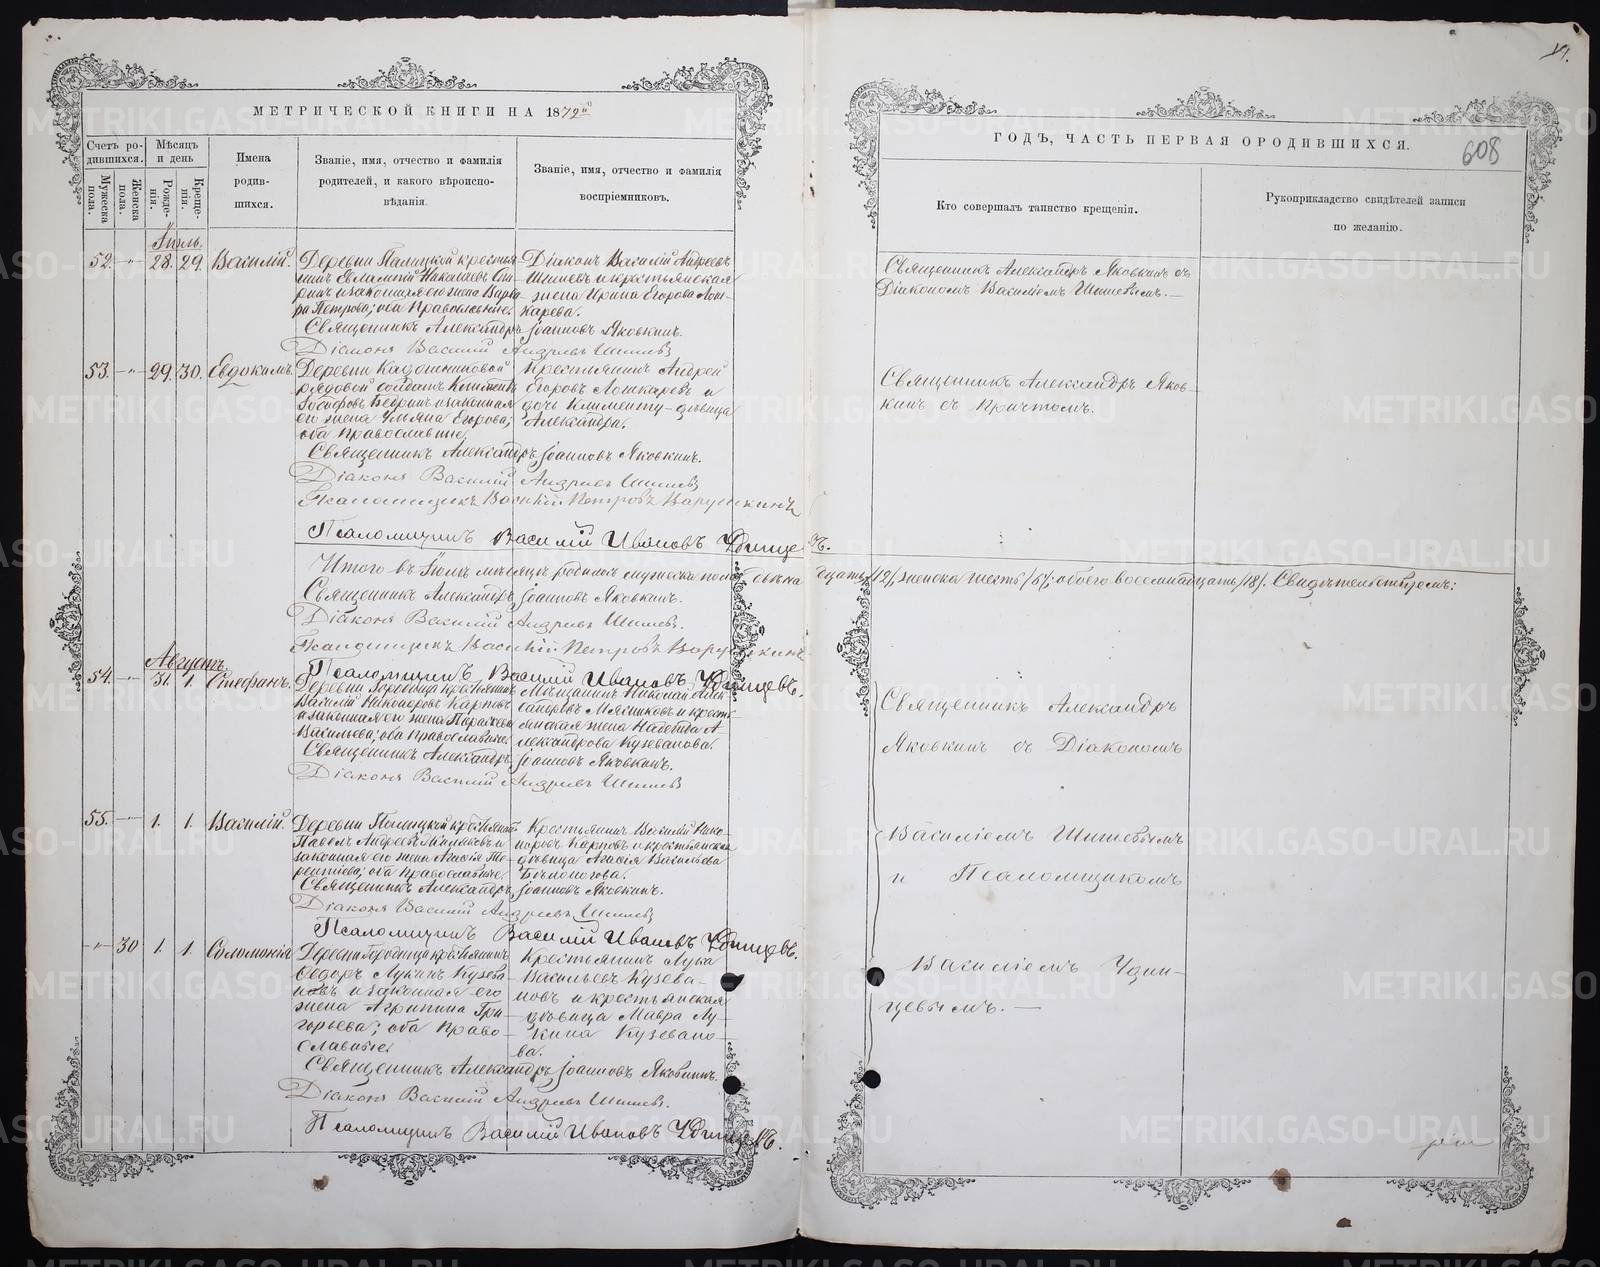 МЕТРИЧЕСКОЙ КНИГИ НА 1872й
Счетъ родившихся.
Мужеска пола.
Женска пола.
Мѣсяцъ и день
Рожденія.
Крещенія.
Имена родившихся.
Званіе, имя, отчество и фамилія родителей, и какого вѣроисповѣданія.
Званіе, имя, отчество и фамилія воспріемниковъ.
Іюль.
52. - " - 28. 29. Василій.
Деревни крестья-
нинъ Евлампій Николаевъ
и законная его жена Варва-
ра Петрова; оба Православные.
Діаконъ Василій Андреевъ
Шишевъ и крестьянская
жена Ирина Егорова Лош-
карева.
Священникъ Александръ Іоанновъ Яковкинъ.
Діаконъ Василій Андреевъ Шишевъ
53. - " - 29. 30. Евдокимъ.
Деревни
рядовой солдатъ
и законная
его жена Ульяна Егорова;
оба Православные.
Крестьянинъ Андрей
Егоровъ Лошкаревъ и
дочь - дѣвица
Александра.
Священникъ Александръ Іоанновъ Яковкинъ.
Діаконъ Василій Андреевъ Шишевъ
Псаломщикъ Василій Петровъ Варушкинъ
Псаломщикъ Василій Ивановъ Удинцевъ.
Итого въ Іюлѣ мѣсяцѣ родилось мужеска пола двѣна
дцать /12/, женска шесть /6/; обоего восемнадцать /18/. Свидѣтельствуемъ:
Священникъ Александръ Іоанновъ Яковкинъ.
Діаконъ Василій Андреевъ Шишевъ.
Псаломщикъ Василій Петровъ Варушкинъ
Псаломщикъ Василій Ивановъ Удинцевъ.
Августъ.
54. - " - 31. 1. Стефанъ.
Деревни Городища крестьянинъ
Василій Никаноровъ Карповъ
и законная его жена Параскева
Васильева; оба Православные.
Мѣщанинъ Николай Алек-
сандровъ Мясниковъ и кресть-
янская жена А-
лександрова Кузеванова.
Священникъ Александръ Іоанновъ Яковкинъ.
Діаконъ Василій Андреевъ Шишевъ
55. - " - 1. 1. Василій.
Деревни крестьянинъ
Павелъ Андреевъ и
законная его жена Агафія Те-
рентьева; оба Православные.
Крестьянинъ Василій Нико-
норовъ Карповъ и крестьянская
дѣвица Агафія Васильева
Бѣлоногова.
Священникъ Александръ Іоанновъ Яковкинъ.
Діаконъ Василій Андреевъ Шишевъ
Псаломщикъ Василій Ивановъ Удинцевъ.
- " - 30 1. 1. Соломонія
Деревни Городища крестьянинъ
Ѳедоръ Лукинъ Кузева-
новъ и законная его
жена Агрипина Гри-
горьева; оба Право-
славные.
Крестьянинъ Лука
Васильевъ Кузева-
новъ и крестьянская
дѣвица Мавра Лу-
кина Кузевано-
ва.
Священникъ Александръ Іоанновъ Яковкинъ.
Діаконъ Василій Андреевъ Шишевъ.
Псаломщикъ Василій Ивановъ Удинцевъ.
ГОДЪ, ЧАСТЬ ПЕРВАЯ ОРОДИВШИХСЯ.
608
Кто совершалъ таинство крещенія.
Рукоприкладство свидѣтелей записи по желанію.
Священникъ Александръ Яковкинъ съ
Діакономъ Василіемъ Шишевымъ. —
Священникъ Александръ Яков-
кинъ съ Причтомъ.
Священникъ Александръ
Яковкинъ съ Діакономъ
Василіемъ Шишевымъ
и Псаломщикомъ
Василіемъ Удин-
цевымъ. —
METRIKI.GASO-URAL.RU